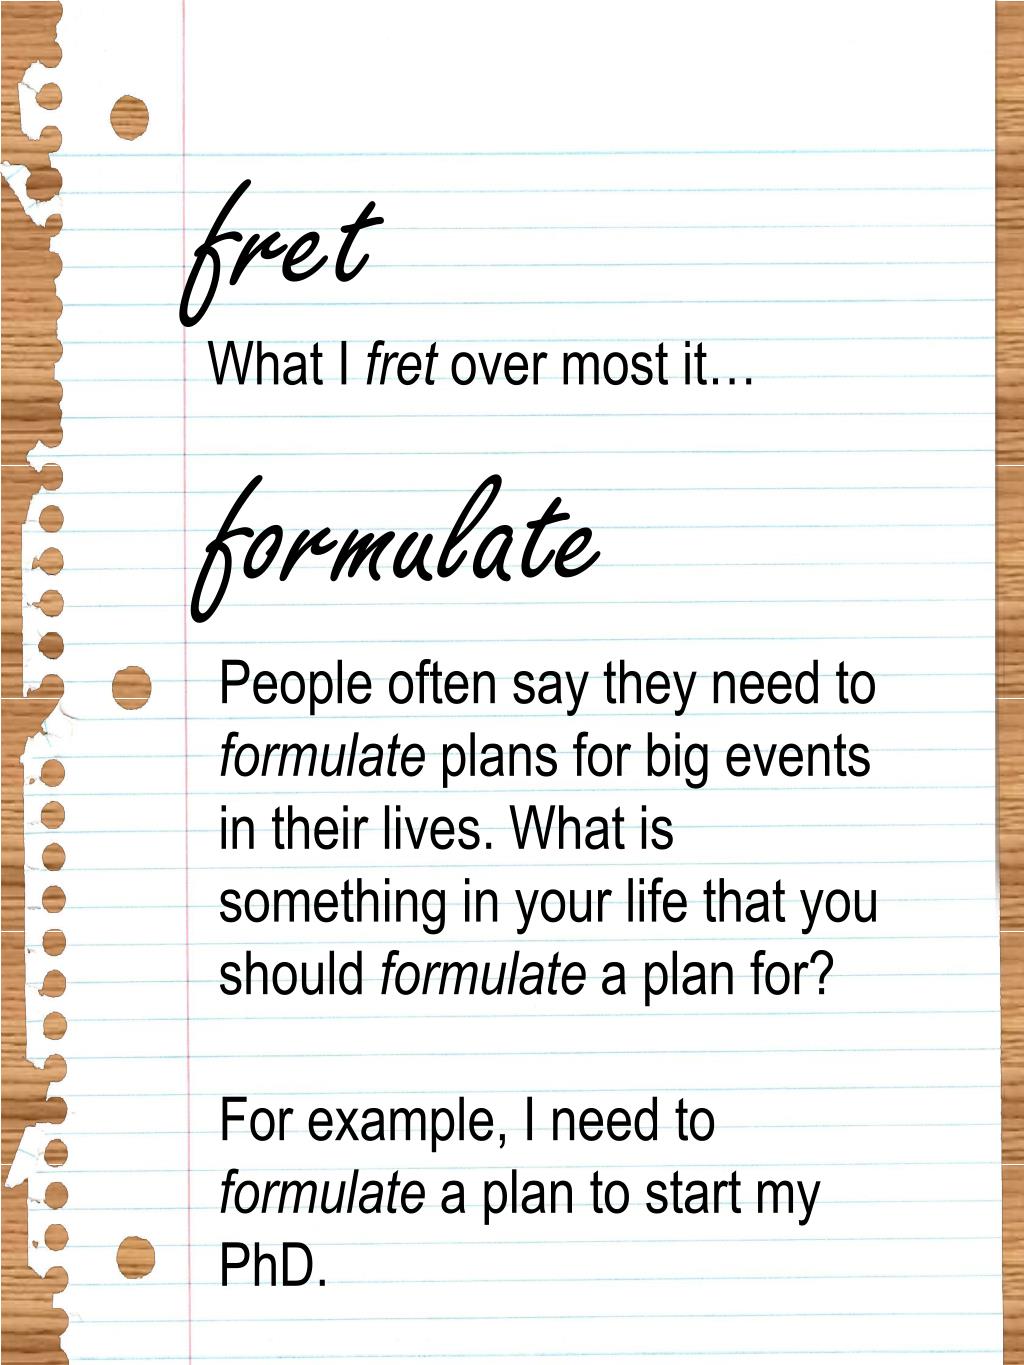 fret
What I fret over most it…
formulate
People often say they need to
formulate plans for big events
in their lives. What is
something in your life that you
should formulate a plan for?
For example, I need to
formulate a plan to start my
PhD.